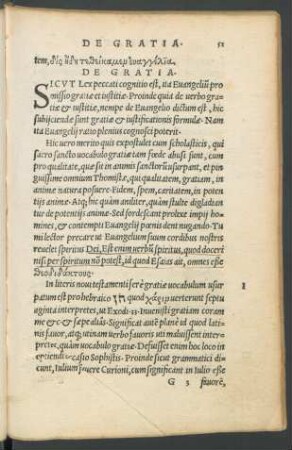 DE GRATIA
51
DE GRATIA.
SICVT Lex peccati cognitio est, ita Euangeliũ pro
missio gratiæ et iustitiæ. Proinde quia de uerbo grati
æ & iustitiæ, nempe de Euangelio dictum est, hic
subijciendæ sunt gratiæ & iustificationis formulæ. Nam
ita Euangelij ratio plenius cognosci poterit.
Hic uero merito quis expostulet cum scholasticis, qui
sacro sancto uocabulo gratiæ tam foede abusi sunt, cum
pro qualitate, quæ in animis sanctorũ sit usurpant, et pin
guissime omnium Thomistæ, qui qualitatem, gratiam, in
animæ natura posuere. Fidem, spem, caritatem, in poten
tijs animæ. Atq; hic quàm aniliter, quàm stulte
de potentijs animæ. Sed sordescant prolexe impij homi
nes, & contempti Euangelij poenas dent nugando. Tu
mi lector precare ut Euangelium suum cordibus nostris
reuelet spiritus Dei, Est enim uerbũ spiritus, quod doceri
nisi per spiritum nõ potest, id quod Esaias ait, omnes esse
θεοδιδάκτους.
In literis noui testamenti fere gratiæ uocabulum usur
patum est pro hebraico חן quod χάριν uerterunt septu
aginta interpretes, ut Exodi 33. Inuenisti gratiam coram
me & & sæpe aliàs. Significat autẽ planè id quod lati
nis fauor, atq; utinam uerbo fauoris uti maluissent inter
pretes, quàm uocabulo gratiæ. Defuisset enim hoc loco in
eptiendi occasio Sophistis. Proinde sicut grammatici di
cunt, Iulium fauere Curioni, cum significant in Iulio esse
G 3 fauorẽ,
1